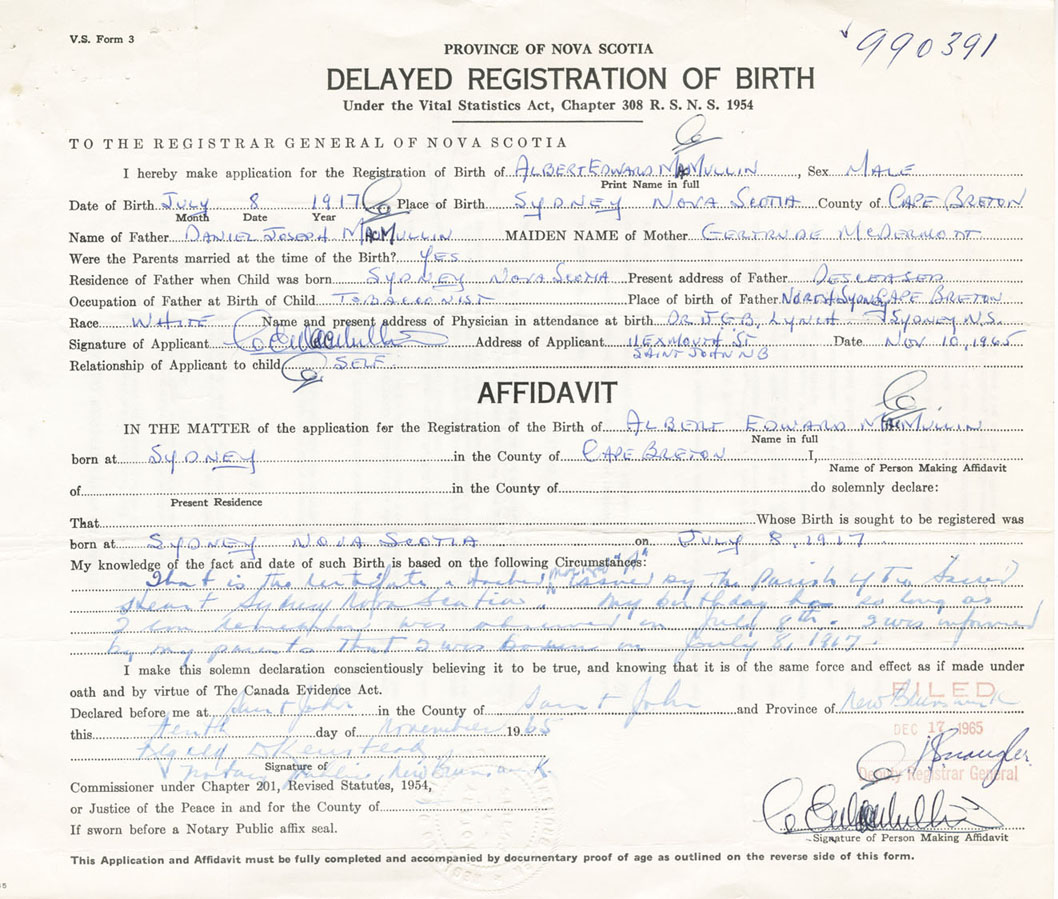 V.S. Form 3
990391
PROVINCE OF NOVA SCOTIA
DELAYED REGISTRATION OF BIRTH
Under the Vital Statistics Act, Chapter 308 R. S. N. S. 1954
TO THE REGISTRAR GENERAL OF NOVA SCOTIA
I hereby make application for the Registration of Birth of ALBERT EDWARD MACMULLIN, Sex MALE
Print Name in full
Date of Birth JULY 8 1917 Place of Birth SYDNEY NOVA SCOTIA County of CAPE BRETON
Month Date Year
Name of Father DANIEL JOSEPH MACMULLIN MAIDEN NAME of Mother GERTRUDE MCDERMOTT
Were the Parents married at the time of the Birth? YES
Residence of Father when Child was born SYDNEY NOVA SCOTIA Present address of Father DESCEASED
Occupation of Father at Birth of Child TOBACCONIST Place of birth of Father NORTH SYDNEY CAPE BRETON
Race WHITE Name and present address of Physician in attendance at birth DR J.G.B. LYNCH SYDNEY N.S.
Signature of Applicant Address of Applicant 11 EXMOUTH ST Date NOV 10, 1965
SAINT JOHN NB
Relationship of Applicant to child SELF
AFFIDAVIT
IN THE MATTER of the application for the Registration of the Birth of ALBERT EDWARD MACMULLIN
Name in full
born at SYDNEY in the County of CAPE BRETON I,
Name of Person Making Affidavit
of in the County of do solemnly declare:
Present Residence
That Whose Birth is sought to be registered was
born at SYDNEY NOVA SCOTIA on JULY 8, 1917
My knowledge of the fact and date of such Birth is based on the following Circumstances:
That is the Certificate marked "A" issued by the Parish of the Sacred
Heart Sydney Nova Scotia. My birthday has so long as
I can remember was observed on July 8th. I was informed
by my parents that I was born on July 8, 1917.
I make this solemn declaration conscientiously believing it to be true, and knowing that it is of the same force and effect as if made under
oath and by virtue of The Canada Evidence Act.
FILED
Declared before me at Saint John in the County of Saint John and Province of New Brunswick
DEC 17 1965
this tenth day of November 1965
Signature of
Notary Public, New Brunswick
Deputy Registrar General
Commissioner under Chapter 201, Revised Statutes, 1954,
or Justice of the Peace in and for the County of
If sworn before a Notary Public affix seal.
Signature of Person Making Affidavit
This Application and Affidavit must be fully completed and accompanied by documentary proof of age as outlined on the reverse side of this form.